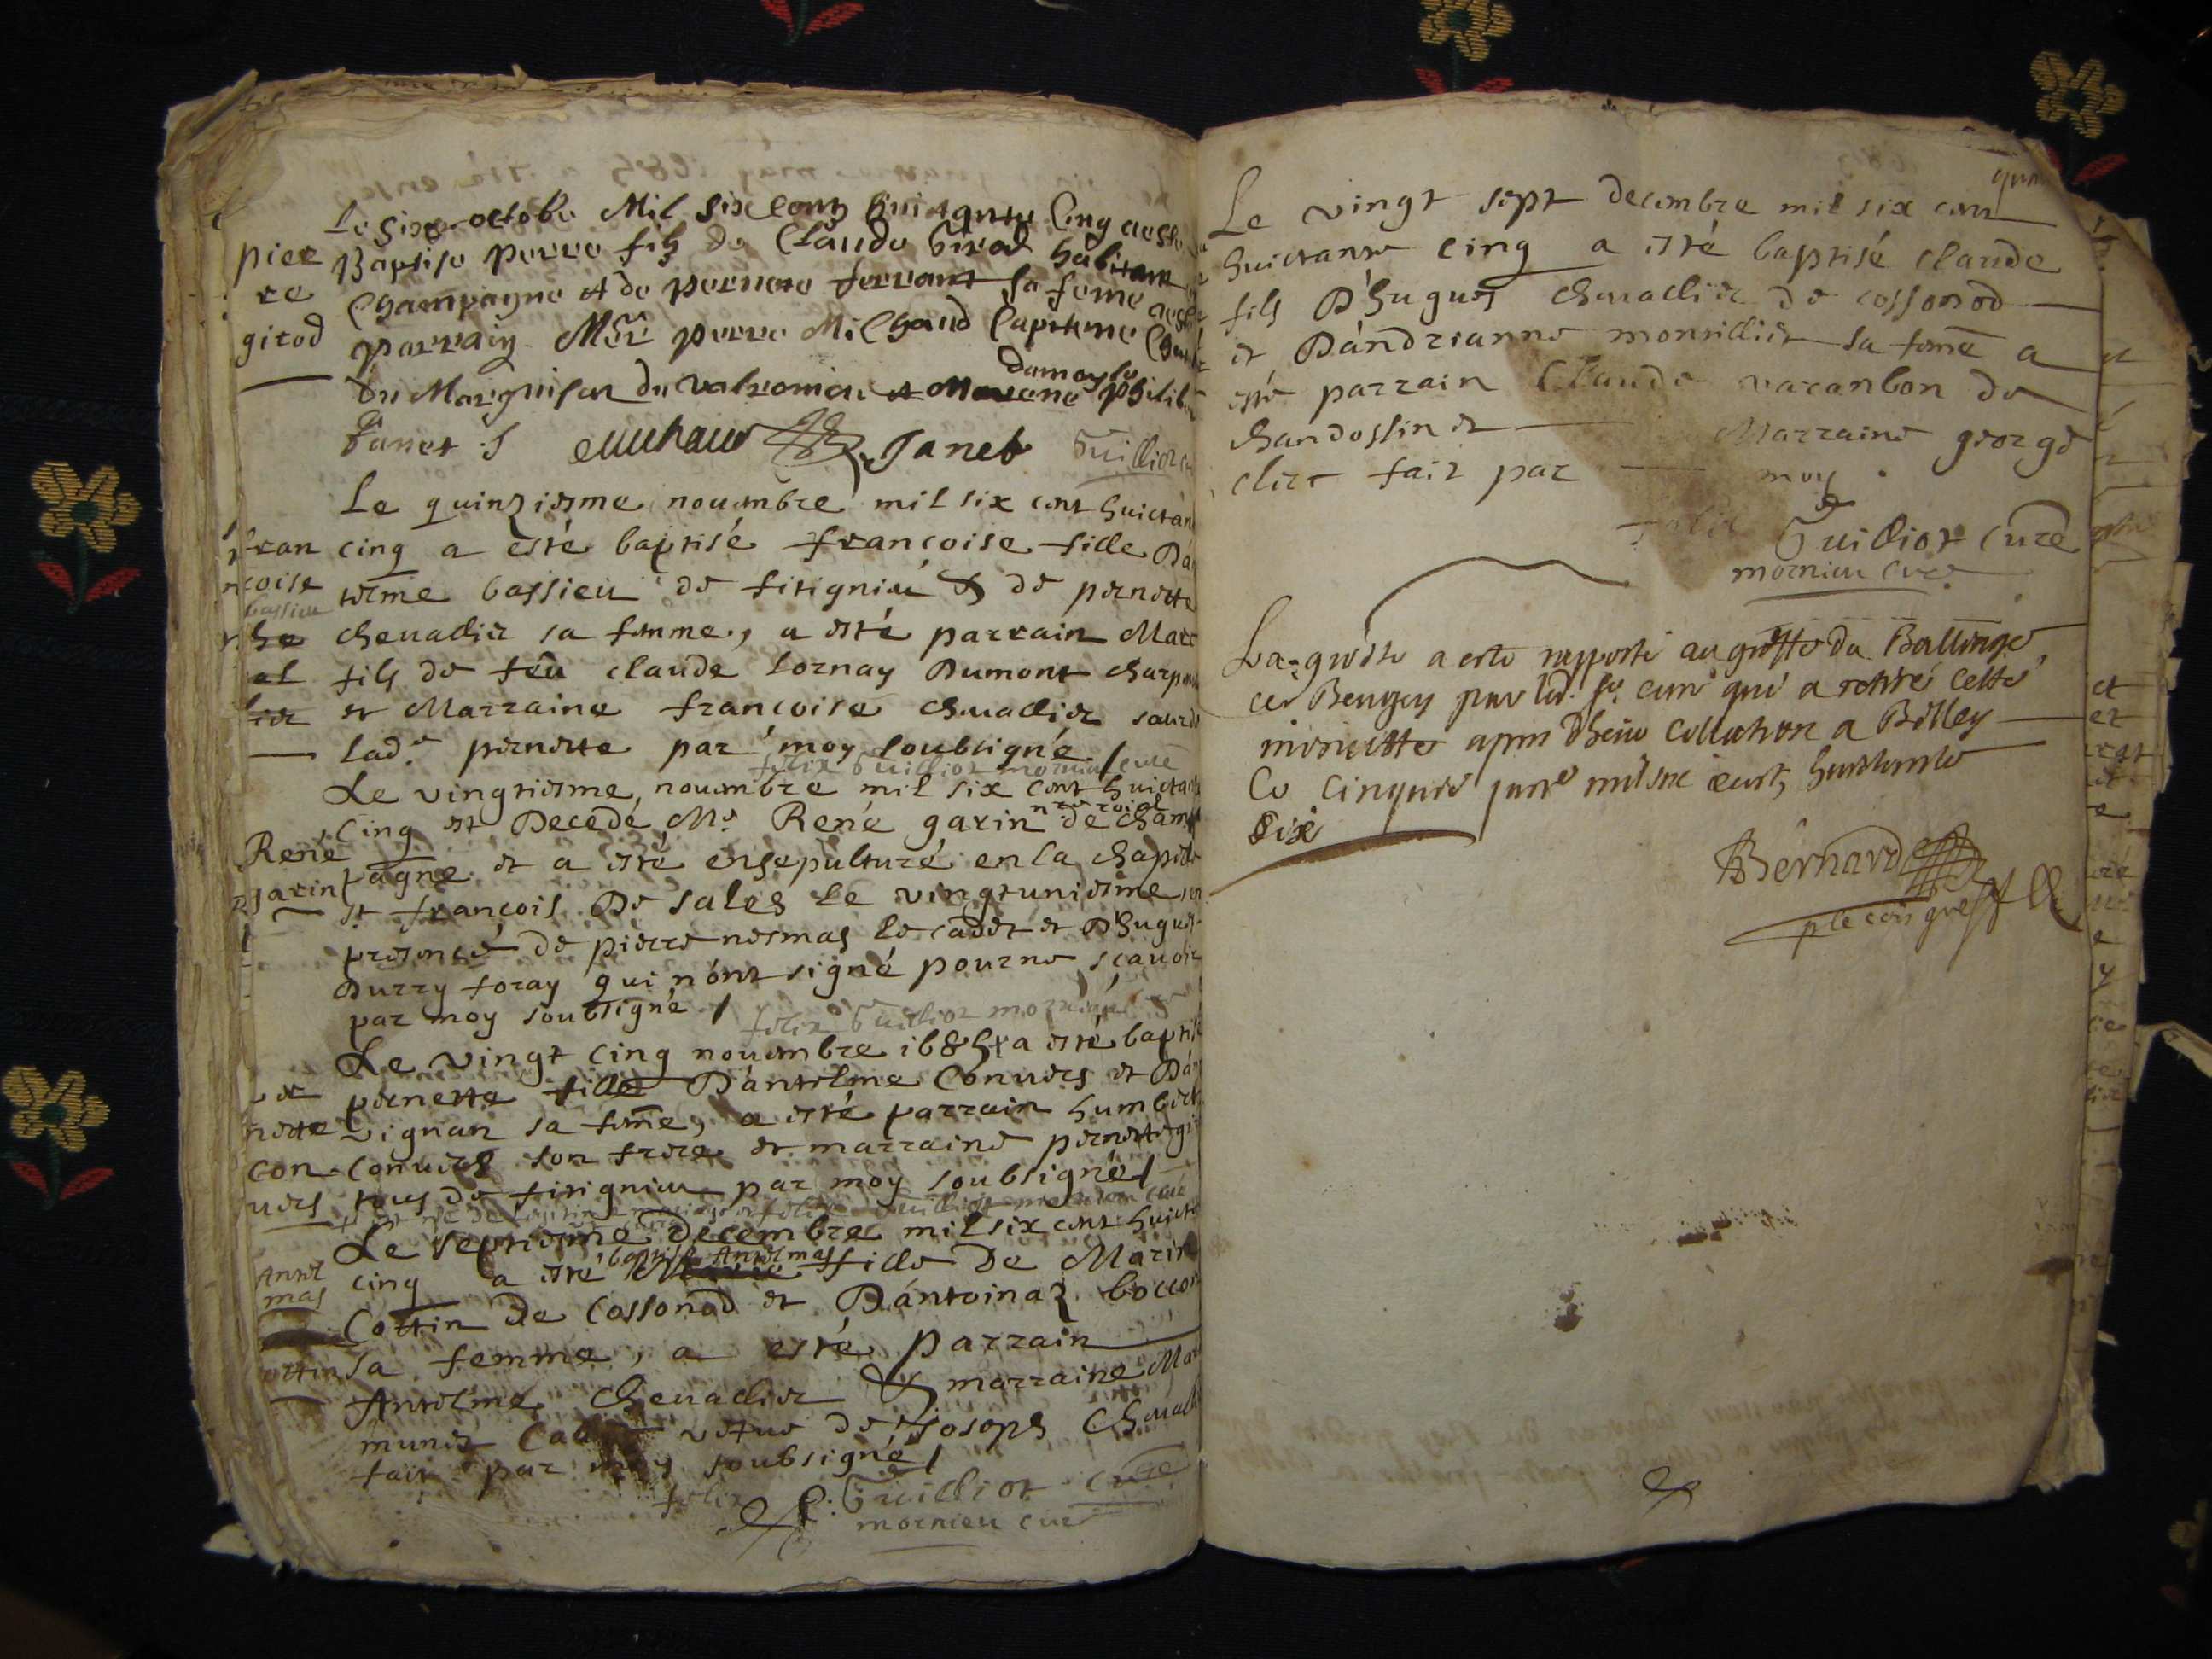 Le six octobre Mil six Cents huictante Cinq a esté
Baptise pierre filz de Claude Girod habitant
Champagne et de pernete ferrant sa feme a esté
parrain Mr pierre Milhaud Capitaine
du Marquisat du Valromei et Marene damoyselle philib
Janet
Janet Guilliot
pier
re
girod
Le quinziesme nouembre mil six cent huictan
cinq a esté baptisé françoise fille Dan
telme bassieu de fitignieu & de pernette
cheuallier sa femme, a esté parrain Marc
fils de feu claude Lornay Dumont charpen
tier et Marraine francoise cheuallier
lad.e pernette par moy soubsigné /
felix Guilliot mornieu curé
fran
coise
bassieu
Le vingtiesme nouembre mil six cent huictan
cinq est Decedé Me René garin nre roial de cham
pagne et a esté ensepulturé en la chapelle
st françois De sales le vingtuniesme en
presence de pierre nermas le cadet et D'hugues
Durry foray qui n'ont signé pour ne scauoir
par moy soubsigné /
felix Guilliot mornieu
René
garin
Le vingt cinq nouembre 1685 + a esté baptisé
pernette fille D'antelme Conuers et D'an
vignan sa feme, a esté parrain humbert
Conuers son frere et marraine pernette gi
tous de fitignieu par moy soubsigné /
nette
con
uers
Le septiesme Decembre mil six cent huicta
cinq a esté baptisé Antelmas fille De Marin
Cottin De Cossonod et D'antoinaz boccon
sa femme, a esté parrain
Antelme Cheuallier & marraine Mar
munet vefue de Joseph Cheuall
fait par moy soubsigné /
felix Guilliot curé
mornieu curé
Antel
mas
cottin
Le vingt sept decembre mil six cent
huictante cinq a esté baptisé claude
fils D'hugues cheuallier de cossonod
et D'andrianne monsillier sa feme a
esté parrain Claude varanbon de
chandossin et Marraine george
clerc fait par moy
felix Guilliot curé
mornieu curé
La grosse a esté rapporté au greffe du Balliage
de Beugey par led. sr curé qui a retiré cette
minutte apres dheue Collation a Belley
Ce Cinquie janr mil six cents huictante
six
Bernard